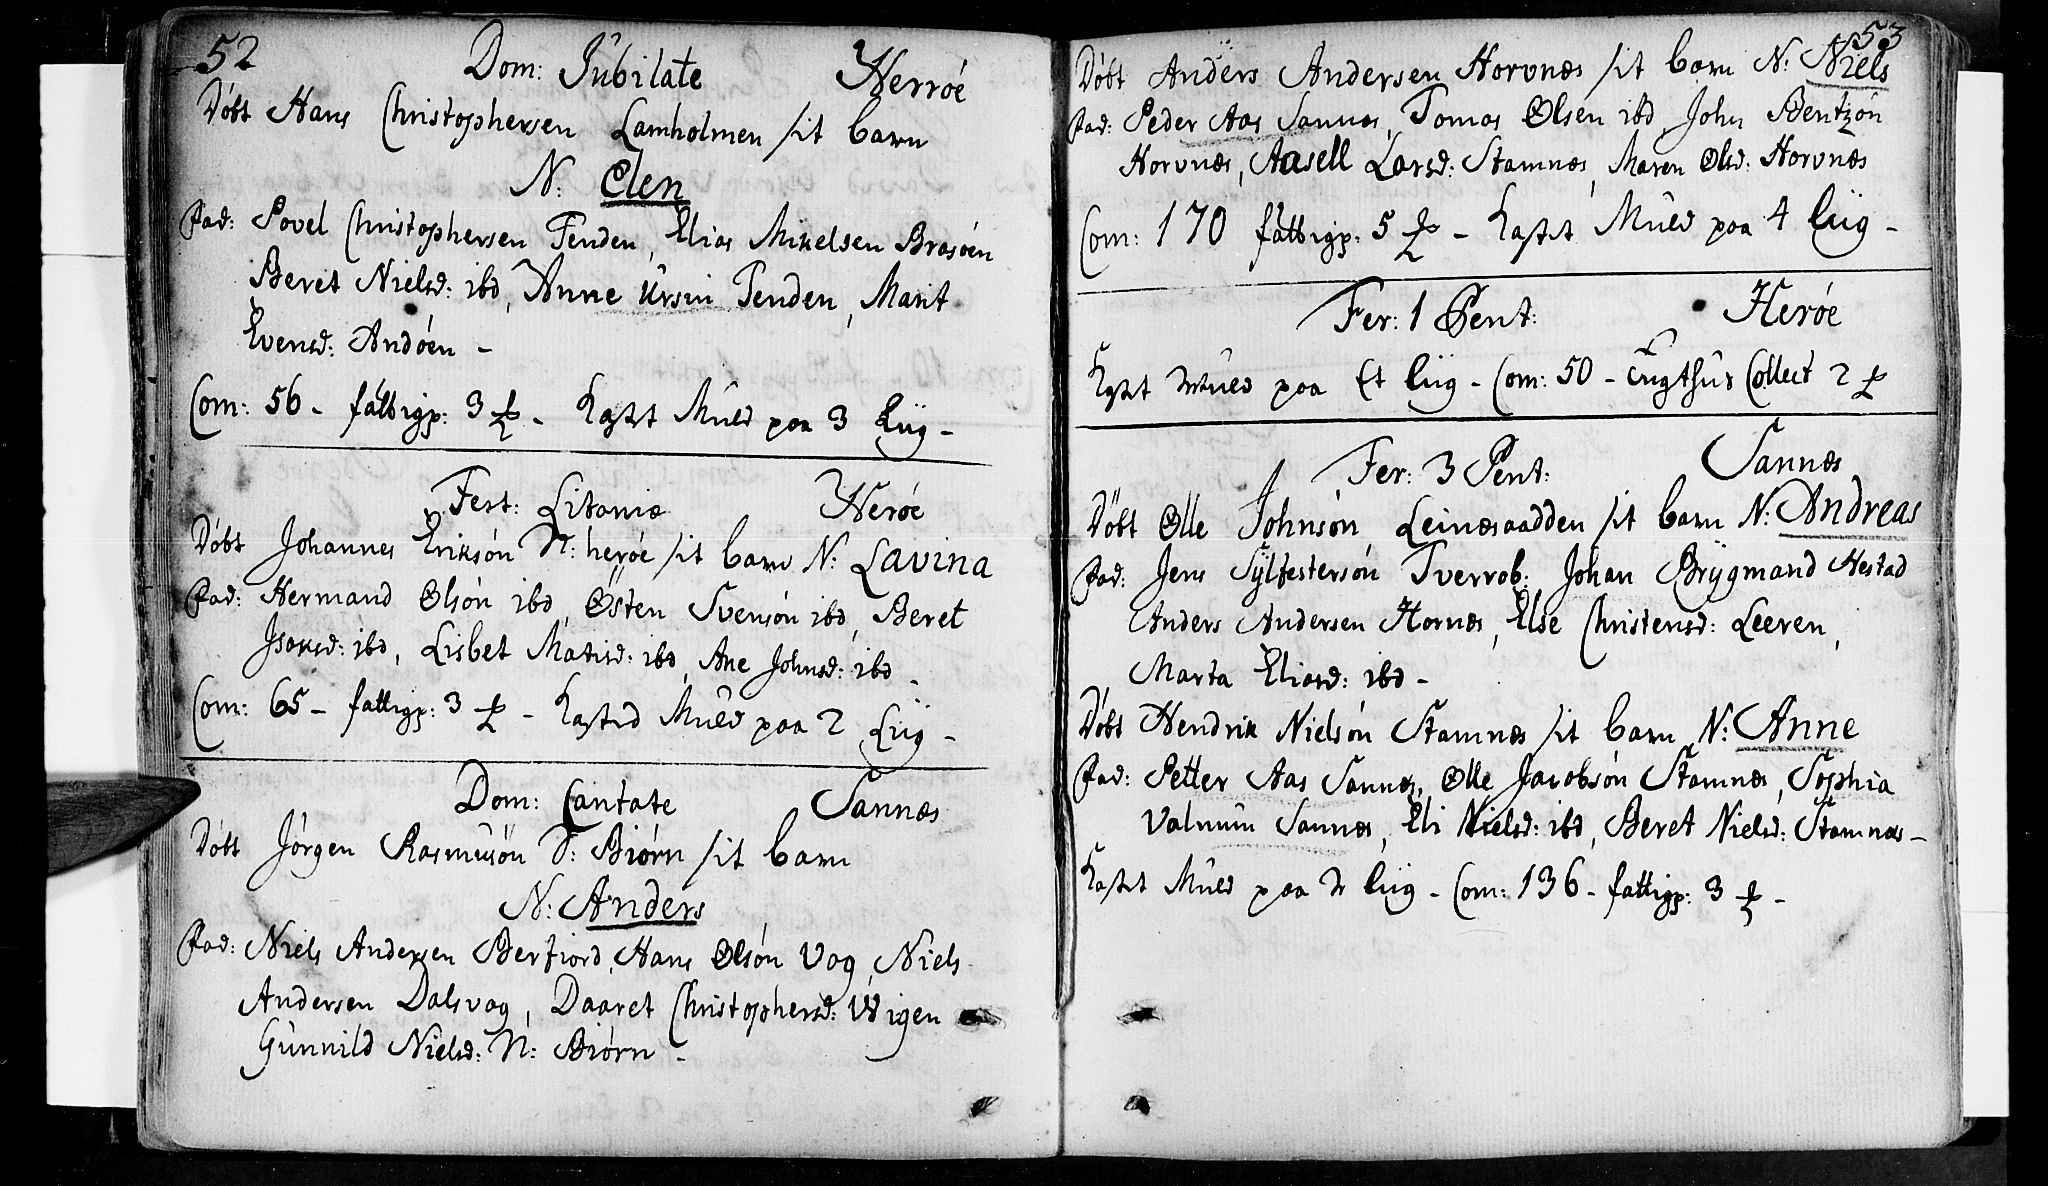 52
Dom: Jubilate Herröe
Döbt Hans Christophersen Lamholmen sit barn
N: Elen
Fad: Povel Christophersen Tenden, Elias Mikelsen Brasöen
Beret Nielsd: ibd, Anne Ursin Tenden, Marit
Evensd: Andöen -
Com: 56 - fattigp: 3 - Kastet Muld paa 3 Liig -
Fest: Litaniæ Heröe
Döbt Johannes Eriksön N: heröe sit barn N: Lavina
Fad: Hermand Olsön ibd, Östen Svensön ibd, Beret
Isaksd: ibd, Lisbet Matisd: ibd, Ane Johnsd: ibd -
Com: 65 - fattigp: 3 - Kasted Muld paa 2 Liig -
Dom: Cantate Sannæs
Döbt Jörgen Rasmusön S: Biörn sit barn
N: Anders
Fad: Niels Andersen Berfiord, Hans Olsön Vog, Niels
Andersen Dalsvog, Daaret Christophersd: Wigen
Gunnild Nielsd: N: Biörn -
53
Döbt Anders Andersen Horvnæs sit barn N: Niels
Fad: Peder Aas Sannæs, Tomas Olsen ibd, John Bentzön
Horvnæs, Aasell Larsd: Stamnæs, Maren Olsd: Horvnæs
Com: 170 fattigp: 5 - Kastet Muld paa 4 liig -
Fer: 1 Pent: Heröe
Kastet Muld paa Et liig - Com: 50 - Tugthus Collect 2
Fer: 3 Pent: Sannæs
Döbt Olle Johnsön Leinæsaadden sit barn N: Andreas
Fad: Jens Sylfestersön Tverrob: Johan Brygmand Hestad
Anders Andersen Hornæs, Else Christensd: Leeren,
Marta Eliasd: ibd -
Döbt Hendrik Nielsön Stamnæs sit barn N: Anne
Fad: Petter Aas Sannæs, Olle Jacobsön Stamnæs, Sophia
Valnum Sannæs, Eli Nielsd: ibd, Beret Nielsd: Stamnæs -
Kastet Muld paa liig - Com: 136 - fattigp: 3 -